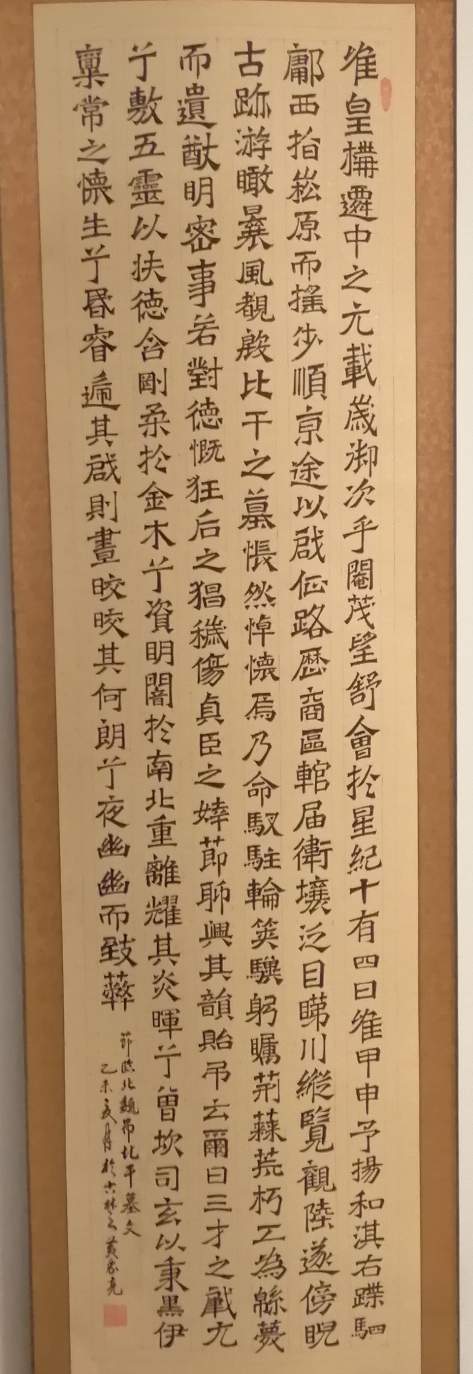 隹皇構遷中之元載歲御次乎閹茂望舒會於星紀十有四日隹甲申予揚和淇右蹀駟
鄘西指崧原而搖步順京途以啟征路歷商區輨届衛壤泛目睇川縱覽觀陸遂傍睨
古跡游瞰曩風覩殷比干之墓悵然悼懷焉乃命馭駐輪筴驥躬矚荊蕀荒朽工為緜蔓
而遺猷明密事若對德慨狂后之猖穢傷貞臣之婞節聊興其韻貽吊云爾曰三才之肇元
兮敷五靈以扶德含剛柔於金木兮資明闇於南北重離耀其炎暉兮曾坎司玄以秉黑伊
稟常之懷生兮昏睿遞其啟則晝皎皎其何朗兮夜幽幽而致蔽
節臨北魏吊比干墓文
乙未夏月於